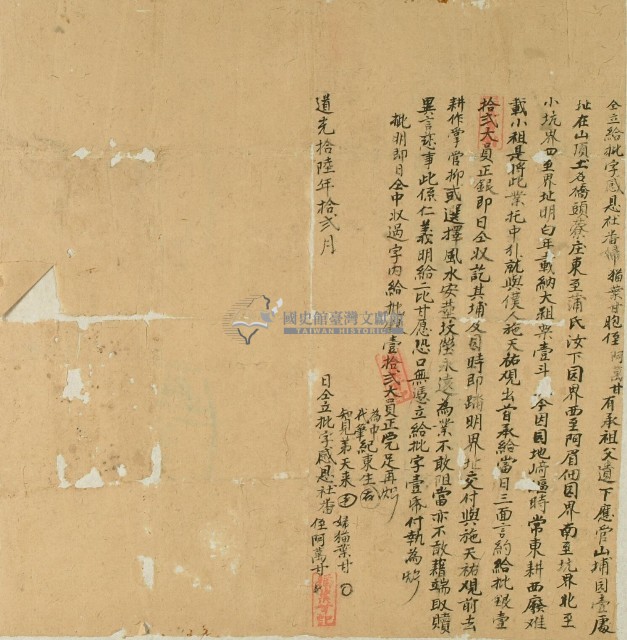 仝立給批字感恩社番婦猫葉甘胞侄阿萬甘有承祖父遺下應管山埔园壹處
址在山頂土名橋頭蔡庄東至蒲氏汝下园界西至阿眉佃园界南至坑界北至
小坑界四至界址明白年載納大租粟壹斗今因园地崎𡸴時常東耕西廢难
載小租是將此業托中引就與僕人施天祐觀出首承給當日三面言約給批銀壹
拾弍大員正銀即日仝收訖其埔及园時即踏明界址交付與施天祐觀前去
耕作掌管抑或選擇風水安葬坟塋永遠為業不敢阻當亦不敢藉端取贖
異言滋事此係仁義明給二比甘愿恐口無憑立給批字壹帋付執為炤
批明即日仝中收過字內給批壹拾弍大員正完足再炤
為中
代筆紀東生
知見弟天來
道光拾陸年拾弍月
日仝立批字感恩社番
婦猫葉甘
侄阿萬甘
國史館臺灣文獻館
TAIWAN HISTORICA